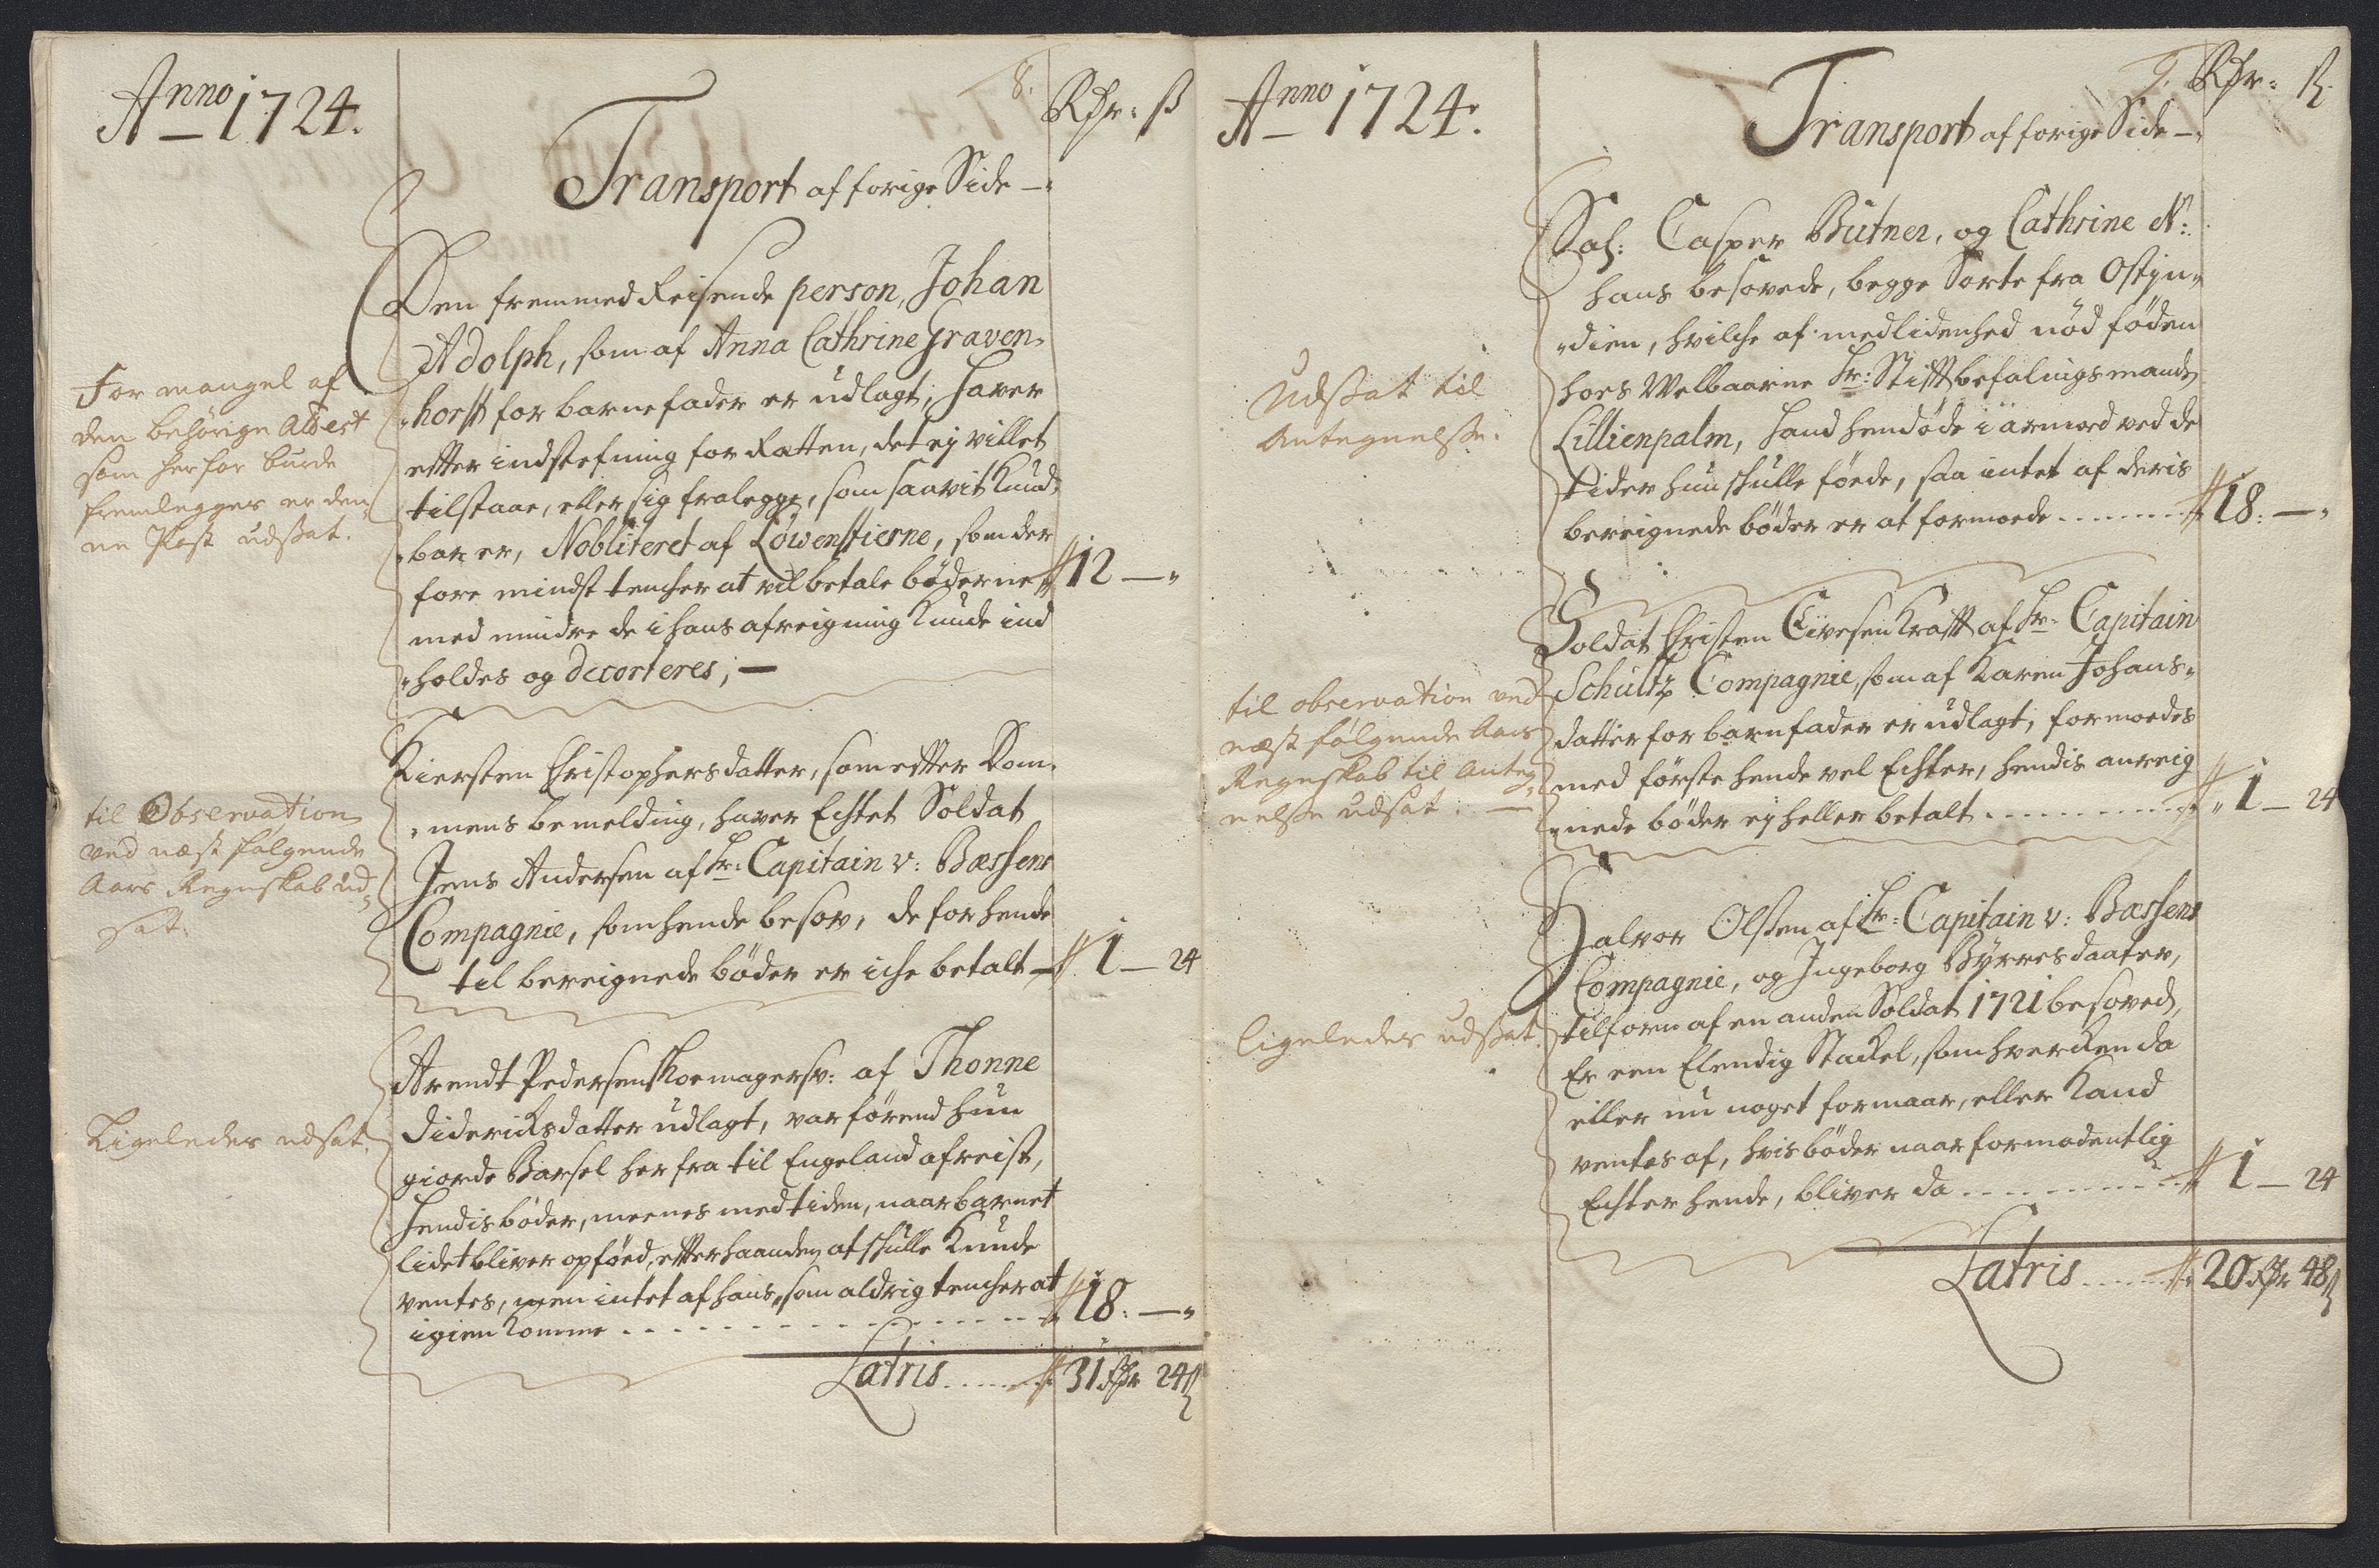 Anno 1724.
8.
Rdr: ß
Transport af forige Side —
Den fremmed Reisende person, Johan
Adolph, som af Anna Cathrine Graven-
horst for barnefader er udlagt, haver
efter indstefning for Retten, det ej villet
tilstaae, eller sig fralegge, som saavit Kund-
bar er, Nobliteret af Löwenstierne, som der
fore mindst tencher at vil betale bøderne 12 —
med mindre de i hans afreigning Kunde ind
holdes og decorteres; —
For mangel af
den behörige Attest
som herfor burde
fremlegges er den
ne Post udsat.
Kiersten Christophersdatter, som efter Dom-
mens bemelding, haver Echtet Soldat
Jens Andersen af Hr: Capitain v: Bassens
Compagnie, som hende besov, de for hende
til bereignede bøder er iche betalt — 1 — 24
til Observation
ved næst følgende
Aars Regnskab ud-
sat.
Arendt Pedersen Skoemagersv: af Thonne
Dideriksdatter udlagt, var førend hun
giorde Barsel her fra til Engeland afreist,
Hendis bøder, meenes med tiden, naar barnet
lidet bliver opføed, efterhaanden at skulle Kunde
ventes, men intet af hans, som aldrig tencher at
igien Komme 18: —
Ligeledes udsat.
Latris 31 Rdr 24 ß
Anno 1724.
9.
Rdr: ß
Transport af forige Side —
Sal: Casper Bütner, og Cathrine N:
hans besovede, begge Sorte fra Ostjn-
dien, hvilche af medlidenhed nød føden
hoes Welbaarne Hr: Stiftbefalingsmand
Lillienpalm, hand hendøde i armoed ved de
tider hun skulle føede, saa intet af deris
bereignede bøder er at formoede 18: —
Udsat til
Antegnelse.
Soldat Christen Eivesen Kraft af Hr: Capitain
Schultz Compagnie, som af Karen Johans-
datter for barnfader er udlagt, formoedes
med første hende vel Echter, hendis anreig
nede bøder ej heller betalt 1 — 24
til observation ved
næst følgende Aars
Regnskab til Anteg-
nelse udsat. —
Halvor Olsen af Hr: Capitain v: Bassens
Compagnie, og Ingeborg Byrresdaater,
tilforn af en anden Soldat 1721 besoved,
Er een Elendig Stackel, som hvercken da
eller nu noget formaar, eller Kand
ventes af, hvis bøder naar formodentlig
Echter hende, bliver da 1 — 24
ligeledes udsat.
Latris 20 Rdr 48 ß